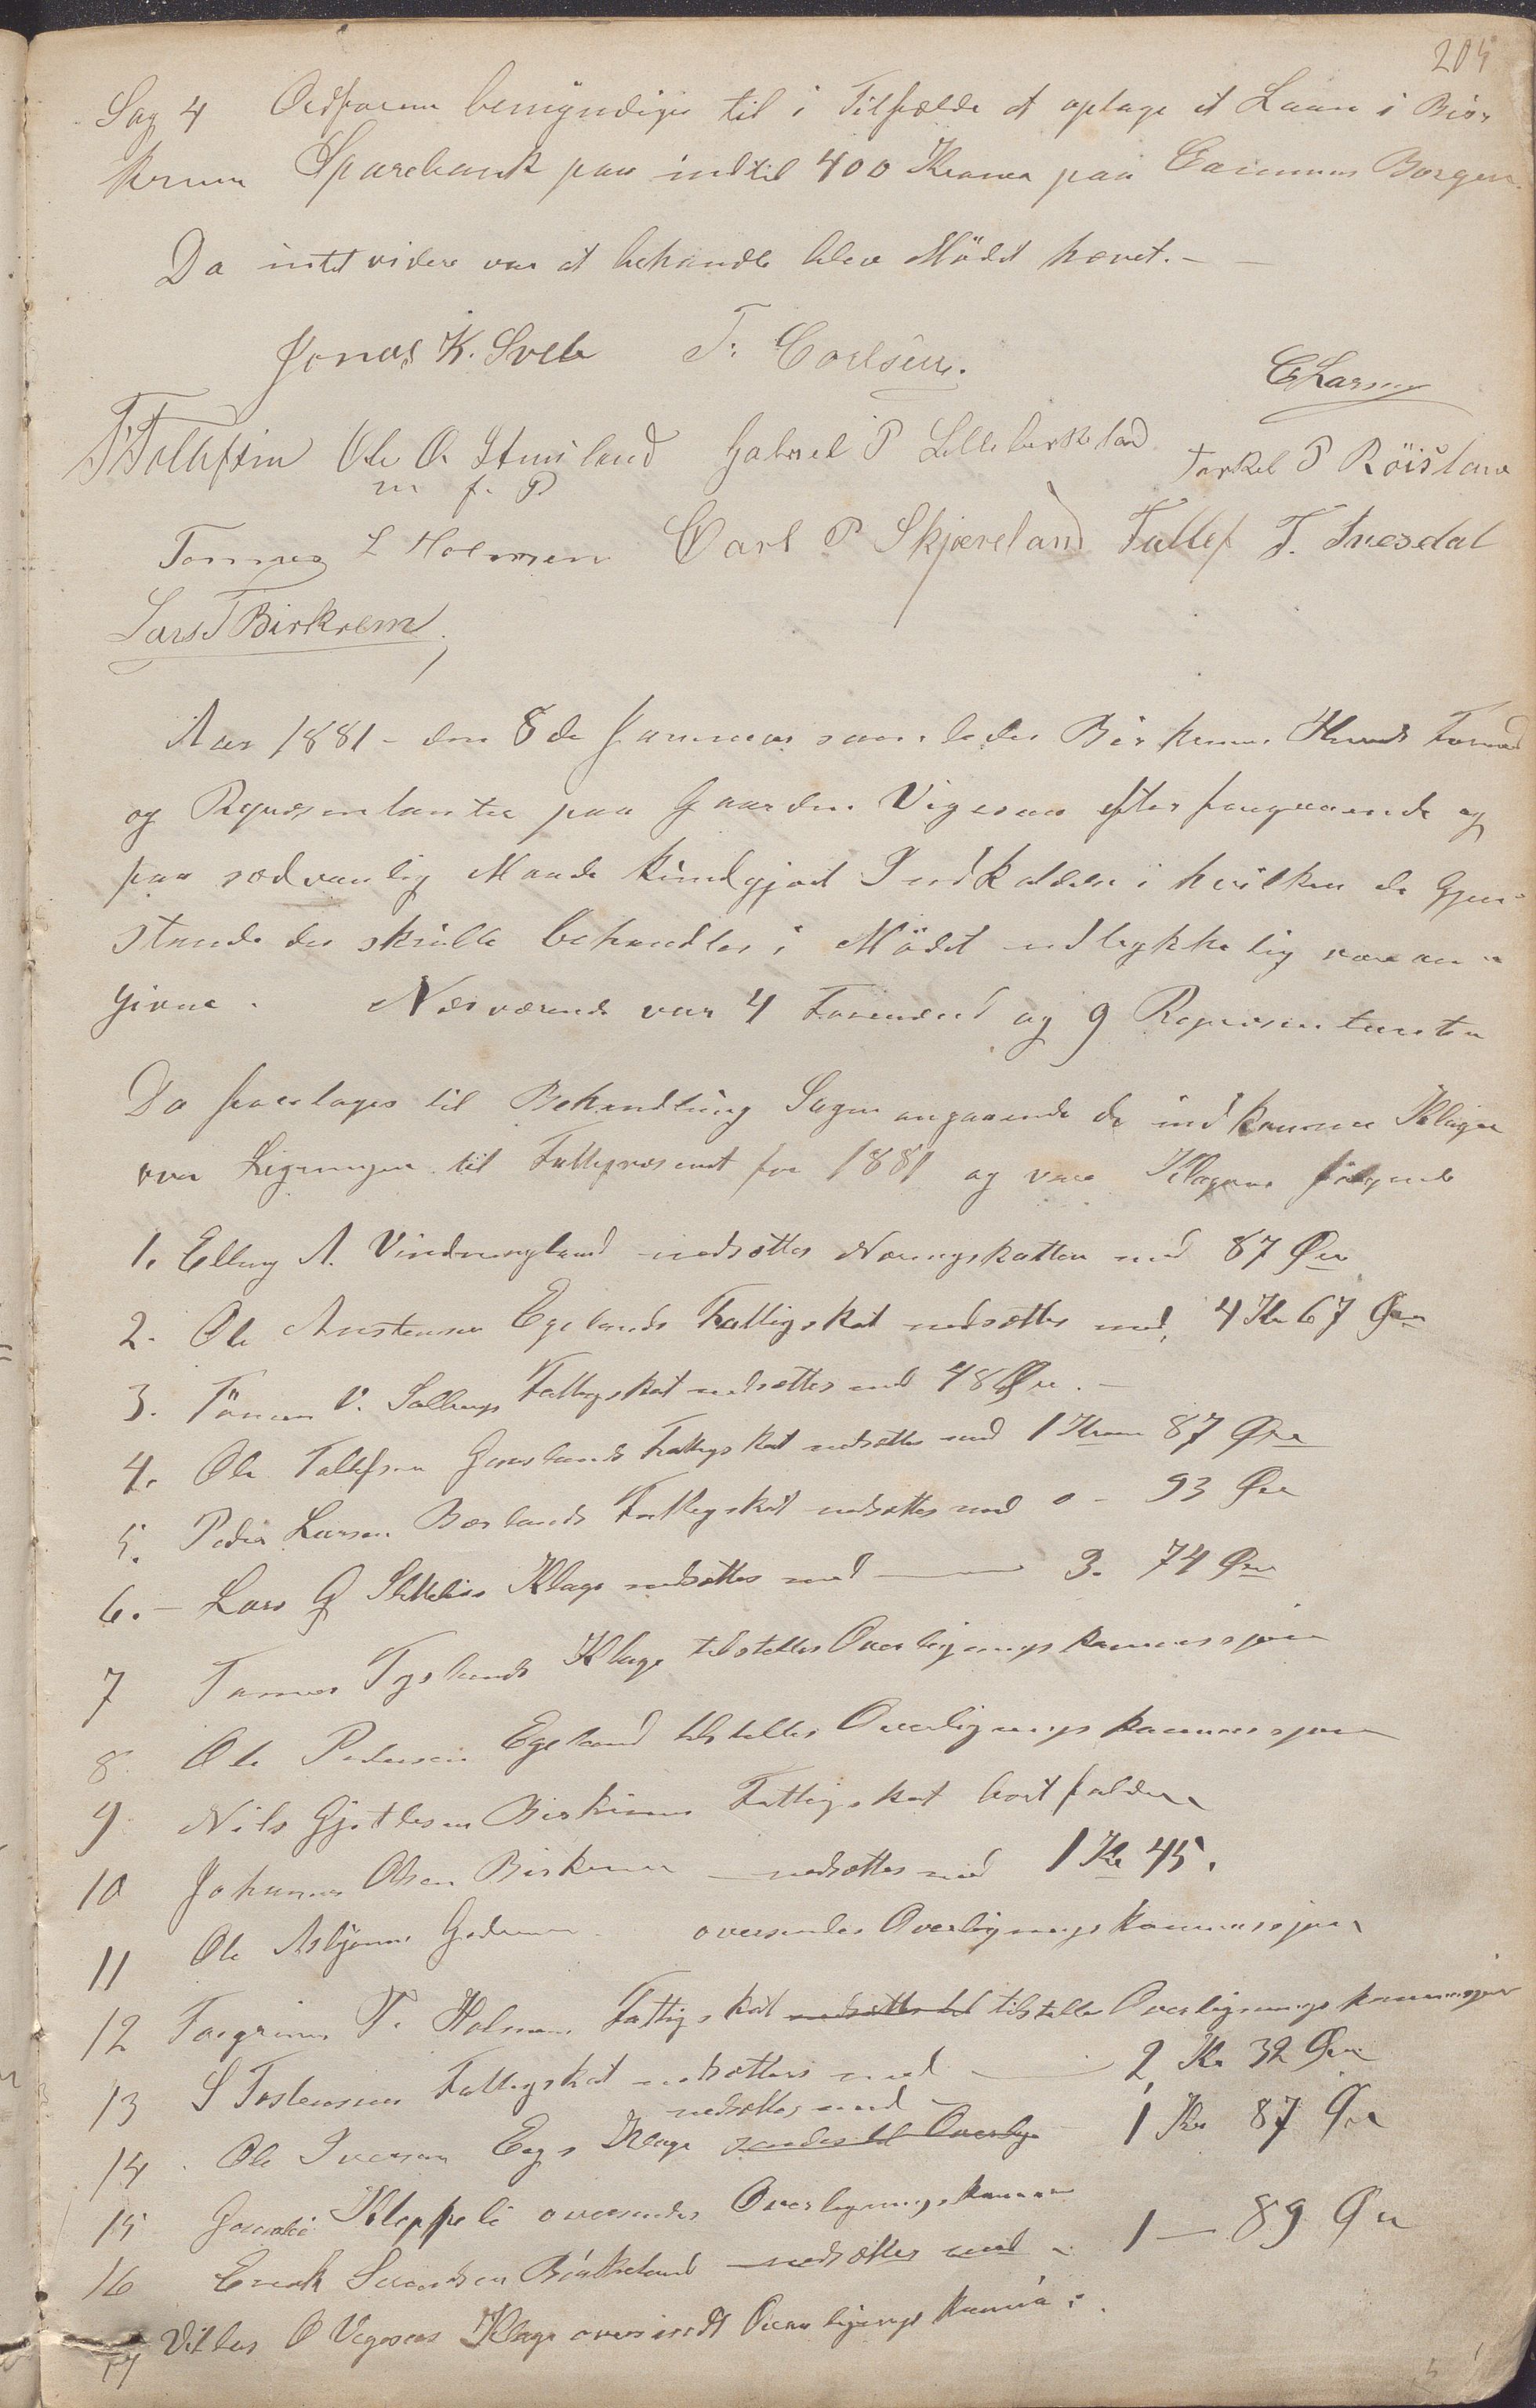 204
Sag 4 Ordføreren bemyndiges til i Tilfælde at optage et Laan i Bir-
krem Sparebank paa indtil 400 Kroner paa Communens Borgen.
Da intet videre var at behandle blev Mödet hævet. —
Jonas K. Svela T. Carlsen.
C Larsen
T Tollefsen Ole O. Stensland Gabriel P Lilleberkeland Torkel P Röisland
m f. P
Tønnes L Holmen Carl P Skjæveland Tollef T. Ivesdal
Lars T Birkrem
Aar 1881 – den 8de Januar samledes Birkrems Herreds Formænd
og Repræsentanter paa Gaarden Vigesaa efter foregaaende og
paa sædvanlig Maade kundgjort Indkaldelse i hvilken de Gjen-
stande der skulle behandles i Mödet udtrykkelig vare an-
givne. Nærværende var 4 Formænd og 9 Repræsentanter
Da foretoges til Behandling Sagen angaaende de indkomne Klager
over Ligningen til Fattigvæsenet for 1881 og vare Klagerne følgende
1. Elling A. Vindingland nedsættes Næringskatten med 87 Øre
2. Ole Austensen Egelands Fattigskat nedsættes med 4 Kr 67 Øre
3. Tönnes V. Solbergs Fattigskat nedsættes med 48 Øre. –
4. Ole Tollefsen Gaaslands Fattigskat nedsættes med 1 Krone 87 Øre
5. Peder Larsen Børlands Fattigskat nedsættes med 0 – 93 Øre
6. – Lars G Klage nedsættes med — 3. 74 Øre
7 Tønnes Tyslands Klage tilstilles Overligningskommissjonen
8. Ole Pedersen Egeland tilstilles Overligningskommissjonen
9 Nils Gjetlesen Birkrems Fattigskat bortfalder
10 Johannes Olsen Birkrem nedsættes med 1 Kr 45.
11 Ole Asbjørns oversendes Overligningskommissjonen
12 Torgrim T. Holmens Fattigskat nedsættes ved tilstilles Overligningskommissjon
13 S Tostensens Fattigskat nedsættes med — 2 Kr 32 Øre
nedsættes med
14. Ole Iversen Eegs Klage sendes til Overlign 1 Kr 87 Øre
15 Kleppeli oversendes Overligningskommis
16 Enok Svendsen Birkeland nedsættes med – 1 — 89 Øre
17 Villas O Vigesaas Klage oversendt Overligningskommis.